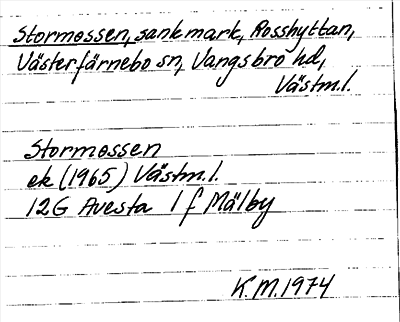 Stormossen, sankmark, Rosshyttan,
Västerfärnebo sn, Vangsbro hd,
Västm.l.
Stormossen
ek (1965) Västm.l.
12G Avesta 1 f Mälby
K.M. 1974